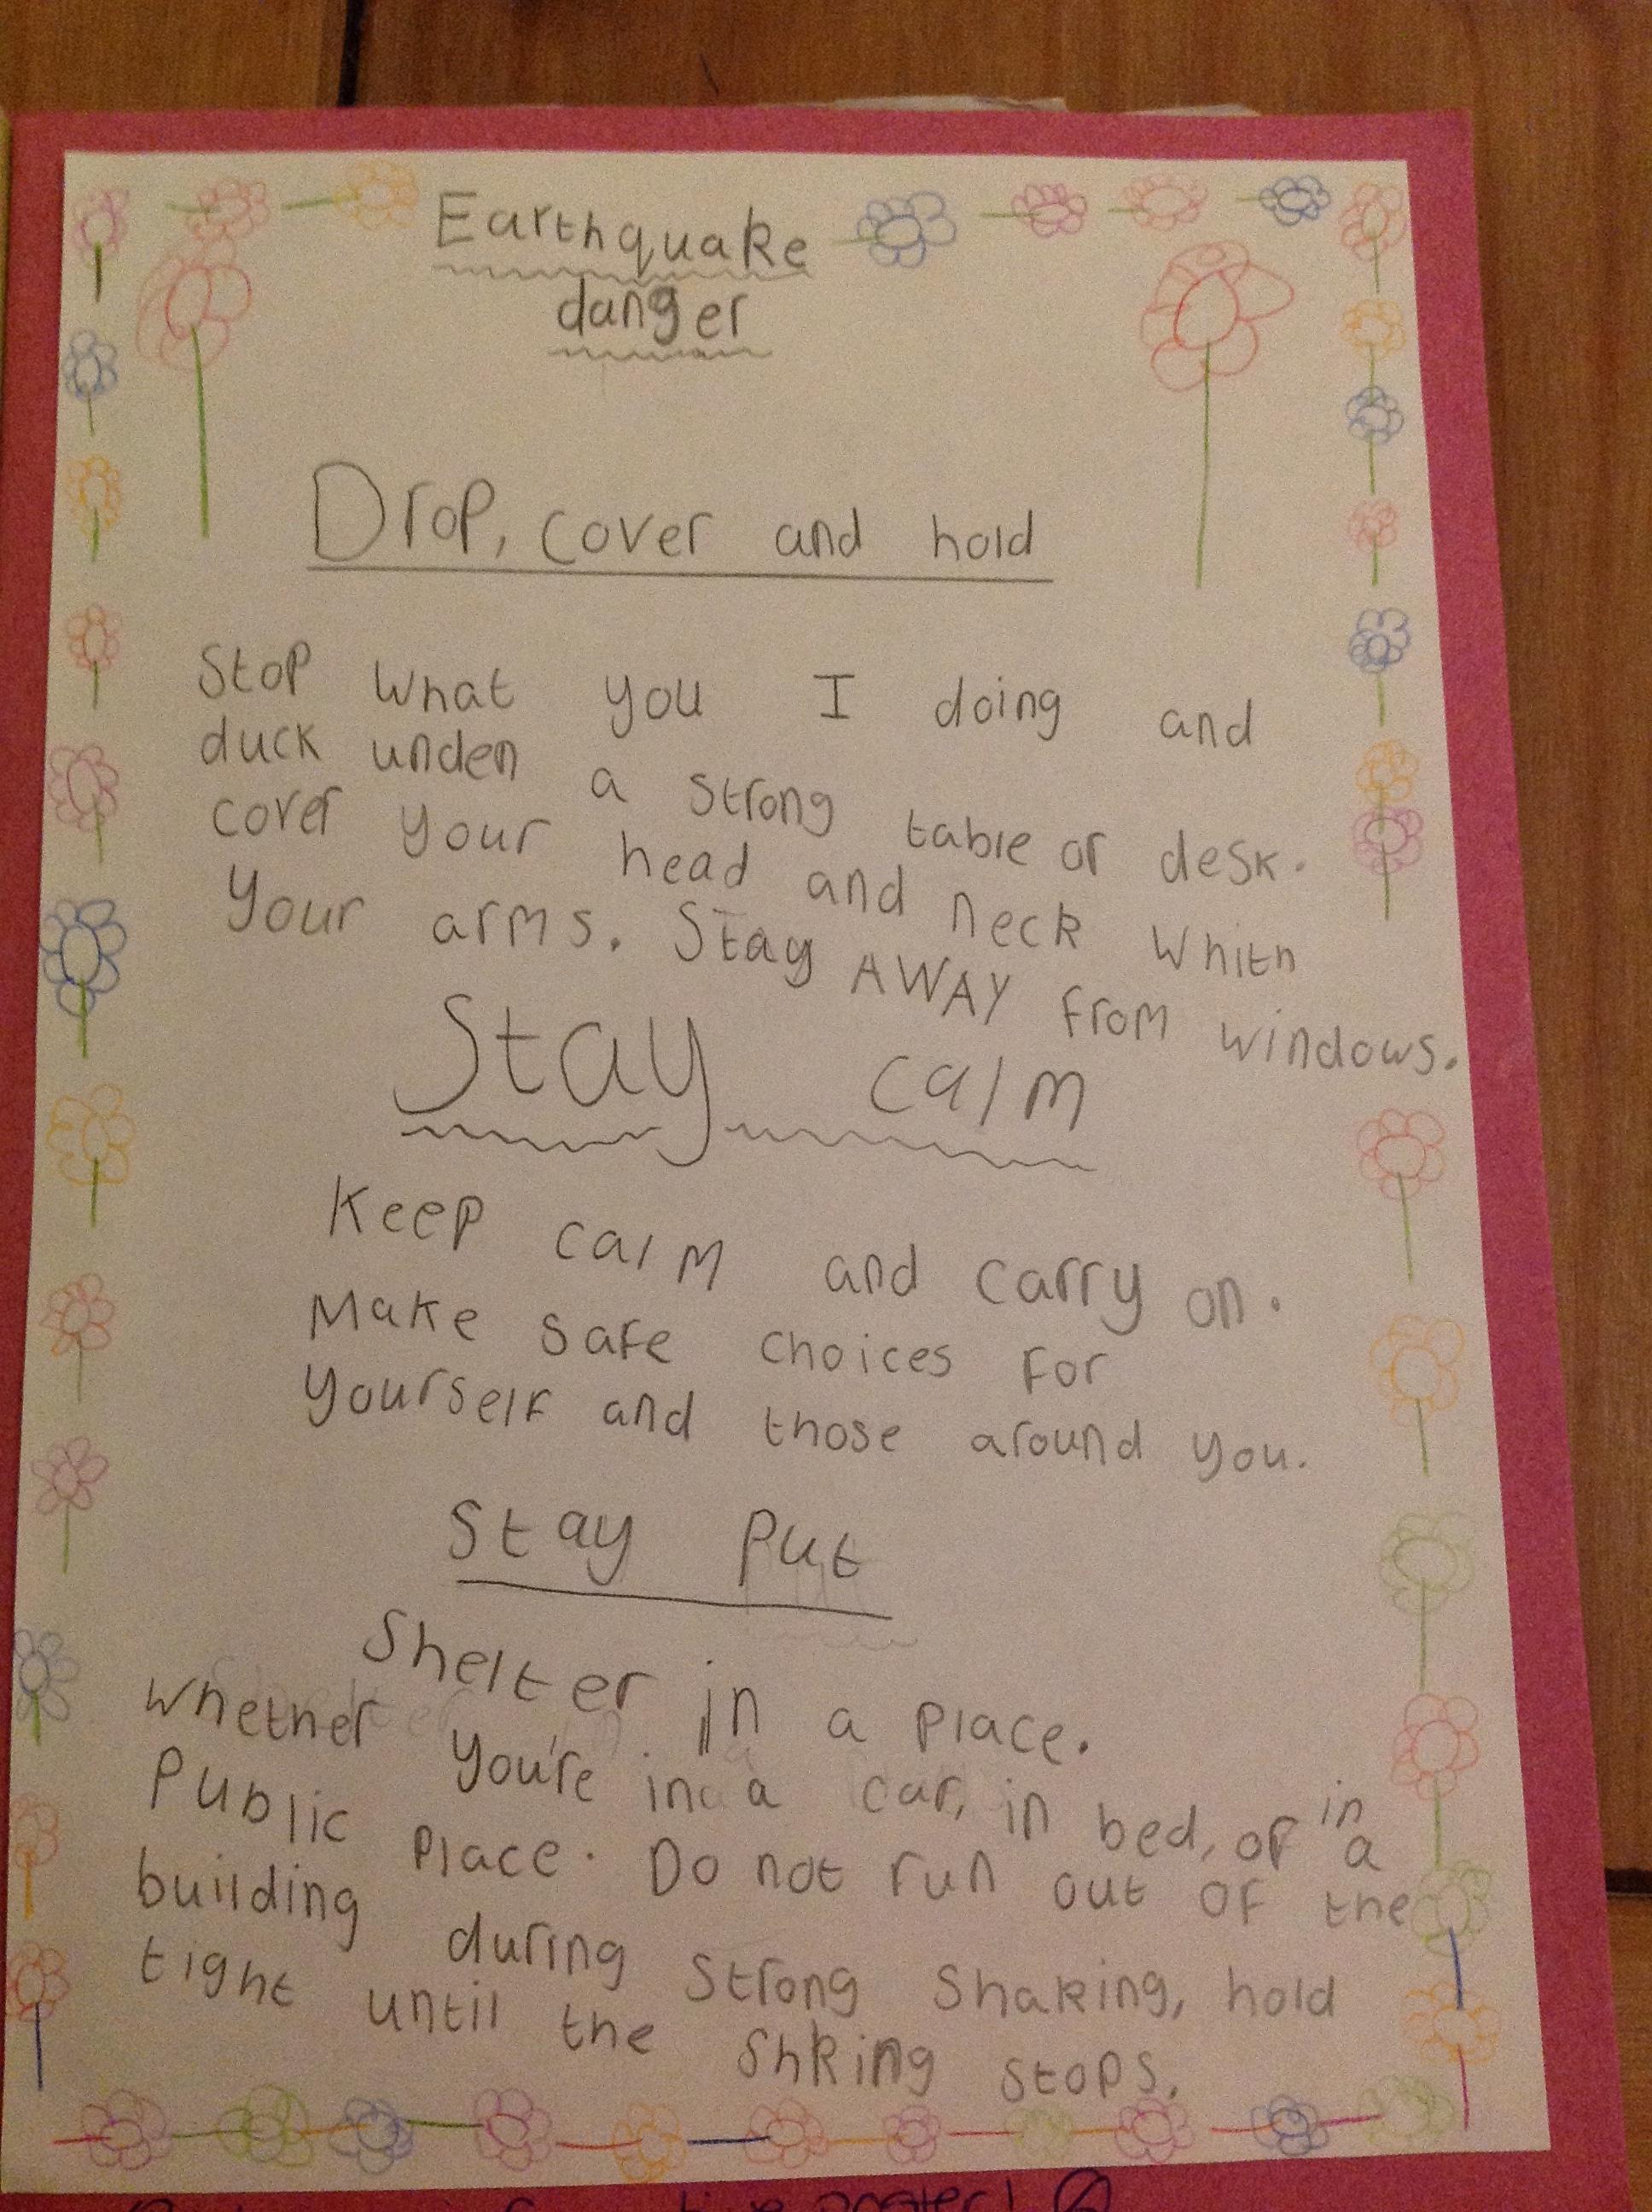 Earthquake
danger
Drop, cover and hold
Stop what you I doing and
duck unden a strong table or desk.
cover your head and neck whith
your arms. Stay AWAY from windows.
Stay calm
Keep calm and carry on.
Make safe choices for
yourself and those around you.
Stay put
Shelter in a place.
whether you're in a car, in bed, or in a
Public place. Do not run out of the
building during strong shaking, hold
tight until the shking stops.